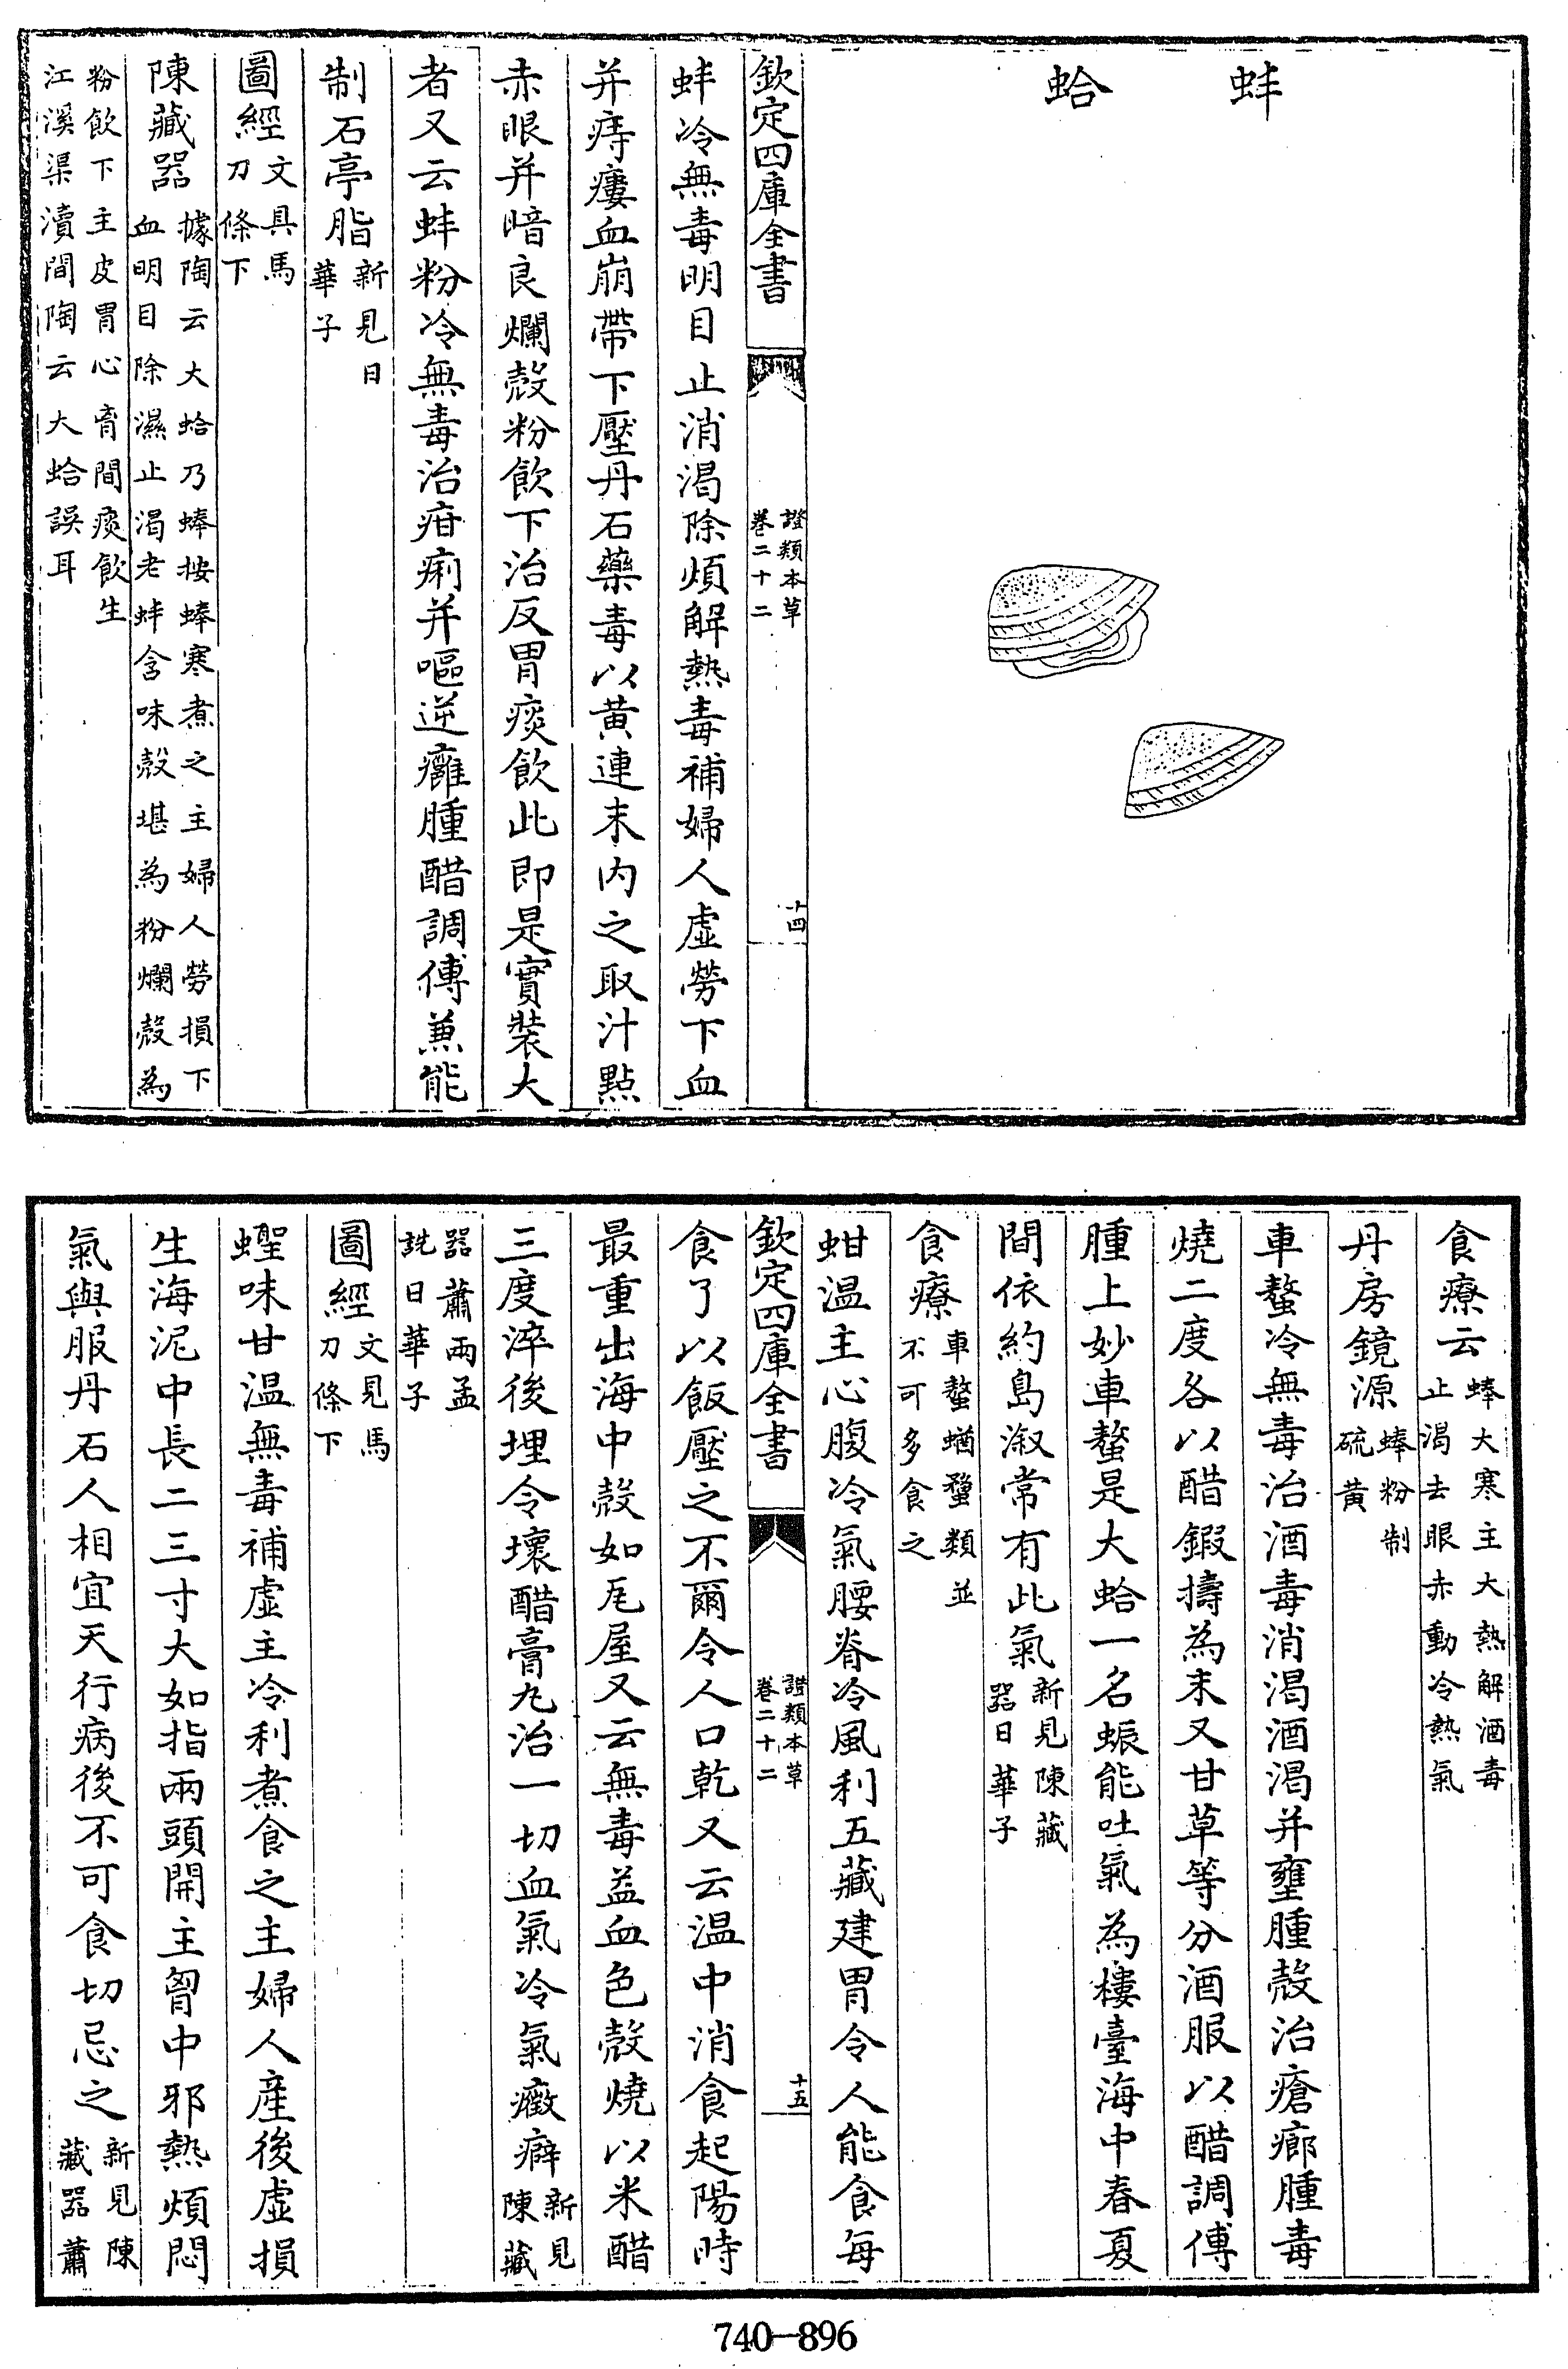 蚌蛤
欽定四庫全書
證類本草
卷二十二
十四
蚌冷無毒明目止消渴除煩解熱毒補婦人虛勞下血
并痔瘻血崩帶下壓丹石藥毒以黃連末内之取汁點
赤眼并暗良爛殼粉飲下治反胃痰飲此即是實裝大
者又云蚌粉冷無毒治疳痢并嘔逆癰腫醋調傅兼能
制石亭脂新見日
華子
圖經文具馬
刀條下
陳藏器據陶云大蛤乃蜯按蜯寒煮之主婦人勞損下
血明目除濕止渴老蚌含味殼堪為粉爛殼為
粉飲下主皮胃心膏間痰飲生
江溪渠瀆間陶云大蛤誤耳
食療云蜯大寒主大熱解酒毒
止渴去眼赤動冷熱氣
丹房鏡源蜯粉制
硫黃
車螯冷無毒治酒毒消渴酒渴并壅腫殼治瘡癤腫毒
燒二度各以醋鍜擣為末又甘草等分酒服以醋調傅
腫上妙車螯是大蛤一名蜄能吐氣為樓臺海中春夏
間依約島溆常有此氣新見陳藏
器日華子
食療車螯蝤蠘類並
不可多食之
蚶温主心腹冷氣腰脊冷風利五藏建胃令人能食每
欽定四庫全書
證類本草
卷二十二
十五
食了以飯壓之不爾令人口乾又云温中消食起陽時
最重出海中殼如瓦屋又云無毒益血色殼燒以米醋
三度淬後埋令壞醋膏丸治一切血氣冷氣癥癖新見
陳藏
器蕭兩孟
詵日華子
圖經文見馬
刀條下
蟶味甘温無毒補虛主冷利煮食之主婦人産後虛損
生海泥中長二三寸大如指兩頭開主胷中邪熱煩悶
氣與服丹石人相宜天行病後不可食切忌之新見陳
藏器蕭
740—896